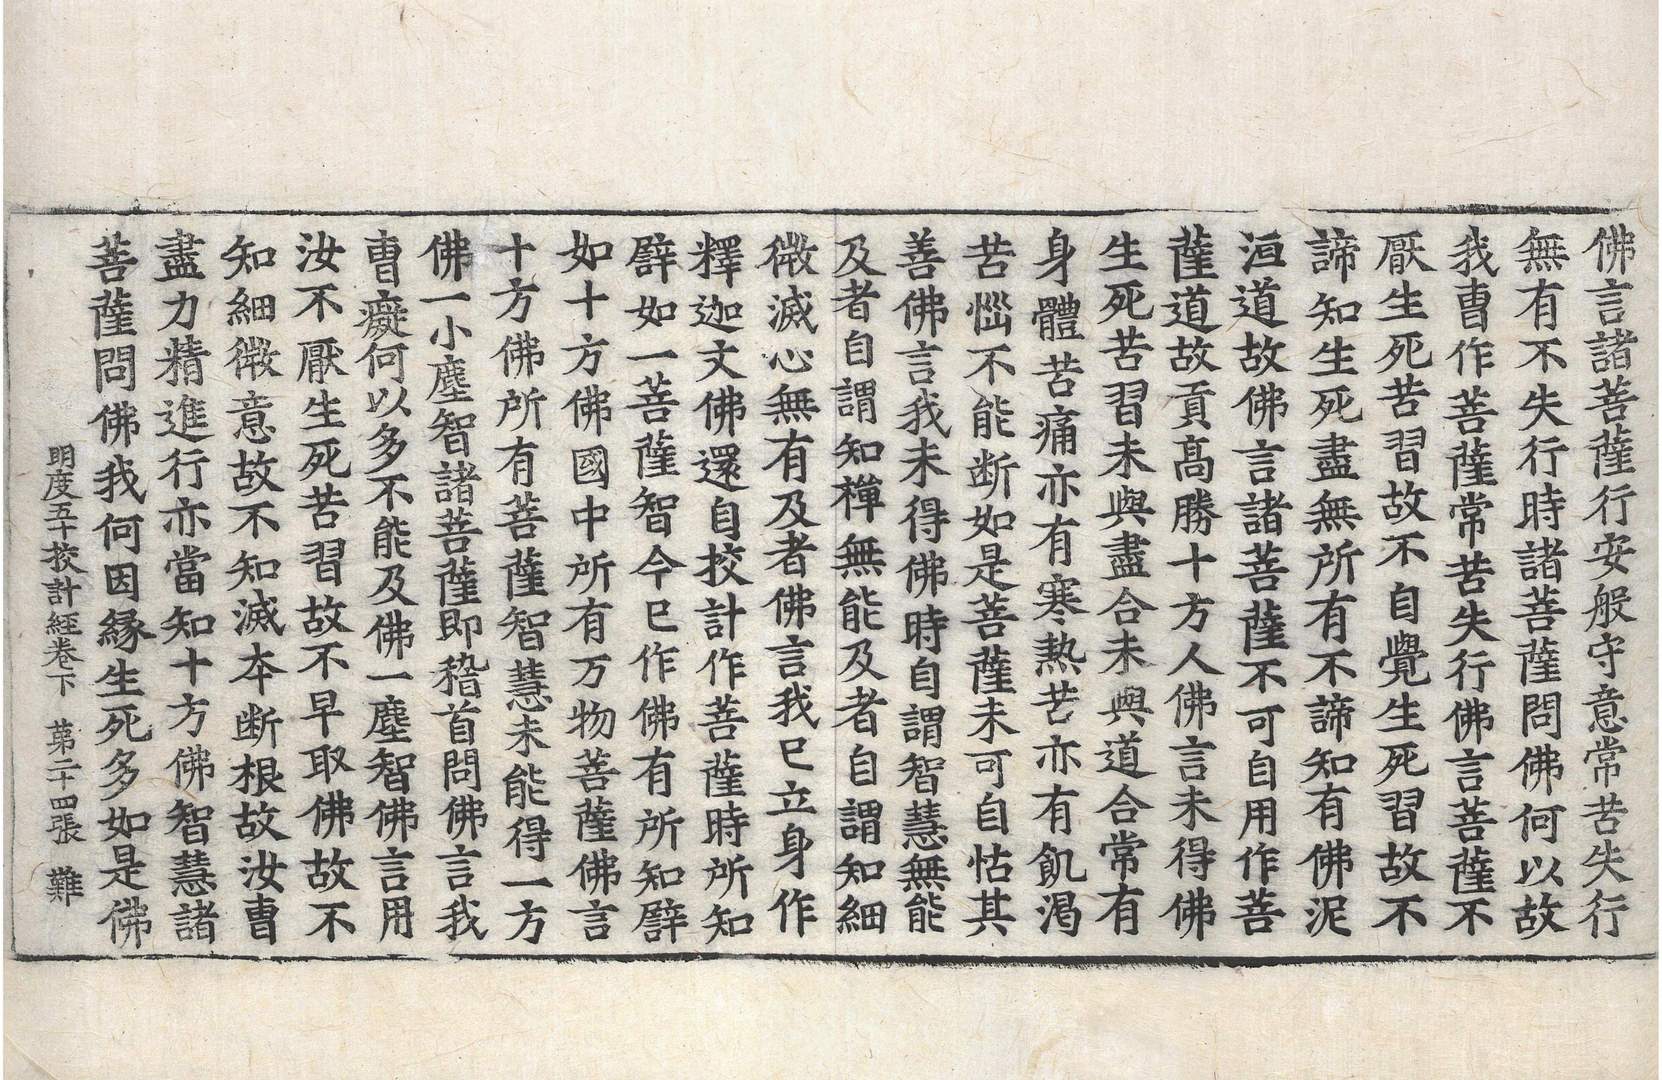 佛言諸菩薩行安般守意常苦失行
無有不失行時諸菩薩問佛何以故
我曺作菩薩常苦失行佛言菩薩不
厭生死苦習故不自覺生死習故不
諦知生死盡無所有不諦知有佛泥
洹道故佛言諸菩薩不可自用作菩
薩道故貢高勝十方人佛言未得佛
生死苦習未與盡合未與道合常有
身體苦痛亦有寒熱苦亦有飢渴
苦惱不能断如是菩薩未可自怙其
善佛言我未得佛時自謂智慧無能
及者自謂知禪無能及者自謂知細
微滅心無有及者佛言我已立身作
釋迦文佛還自挍計作菩薩時所知
譬如一菩薩智今已作佛有所知譬
如十方佛國中所有万物菩薩佛言
十方佛所有菩薩智慧未能得一方
佛一小塵智諸菩薩即稽首問佛言我
曺癡何以多不能及佛一塵智佛言用
汝不厭生死苦習故不早取佛故不
知細微意故不知滅本断根故汝曺
盡力精進行亦當知十方佛智慧諸
菩薩問佛我何因緣生死多如是佛
明度五十挍計經卷下 第二十四張 難